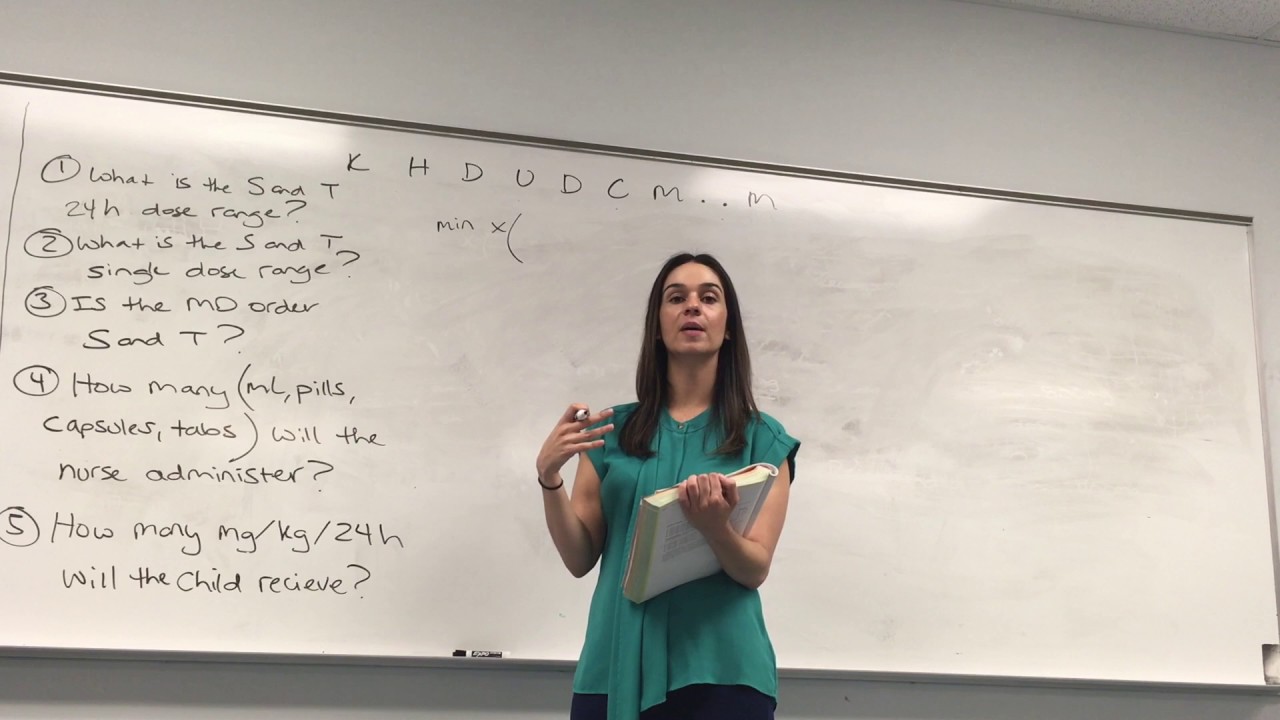 ① What is the S and T
24h dose range?
② What is the S and T
single dose range?
③ Is the MD order
S and T?
④ How many (mL, pills,
capsules, tabs) will the
nurse administer?
⑤ How many mg/kg/24h
will the child recieve?
K H D U D C M . . m
min x (
EXPO